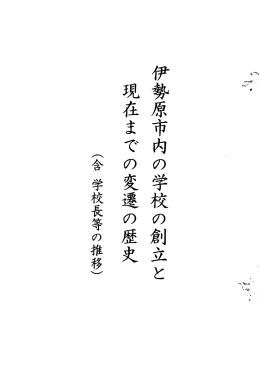 伊勢原市内の学校の創立と
現在までの変遷の歴史
（含 学校長等の推移）